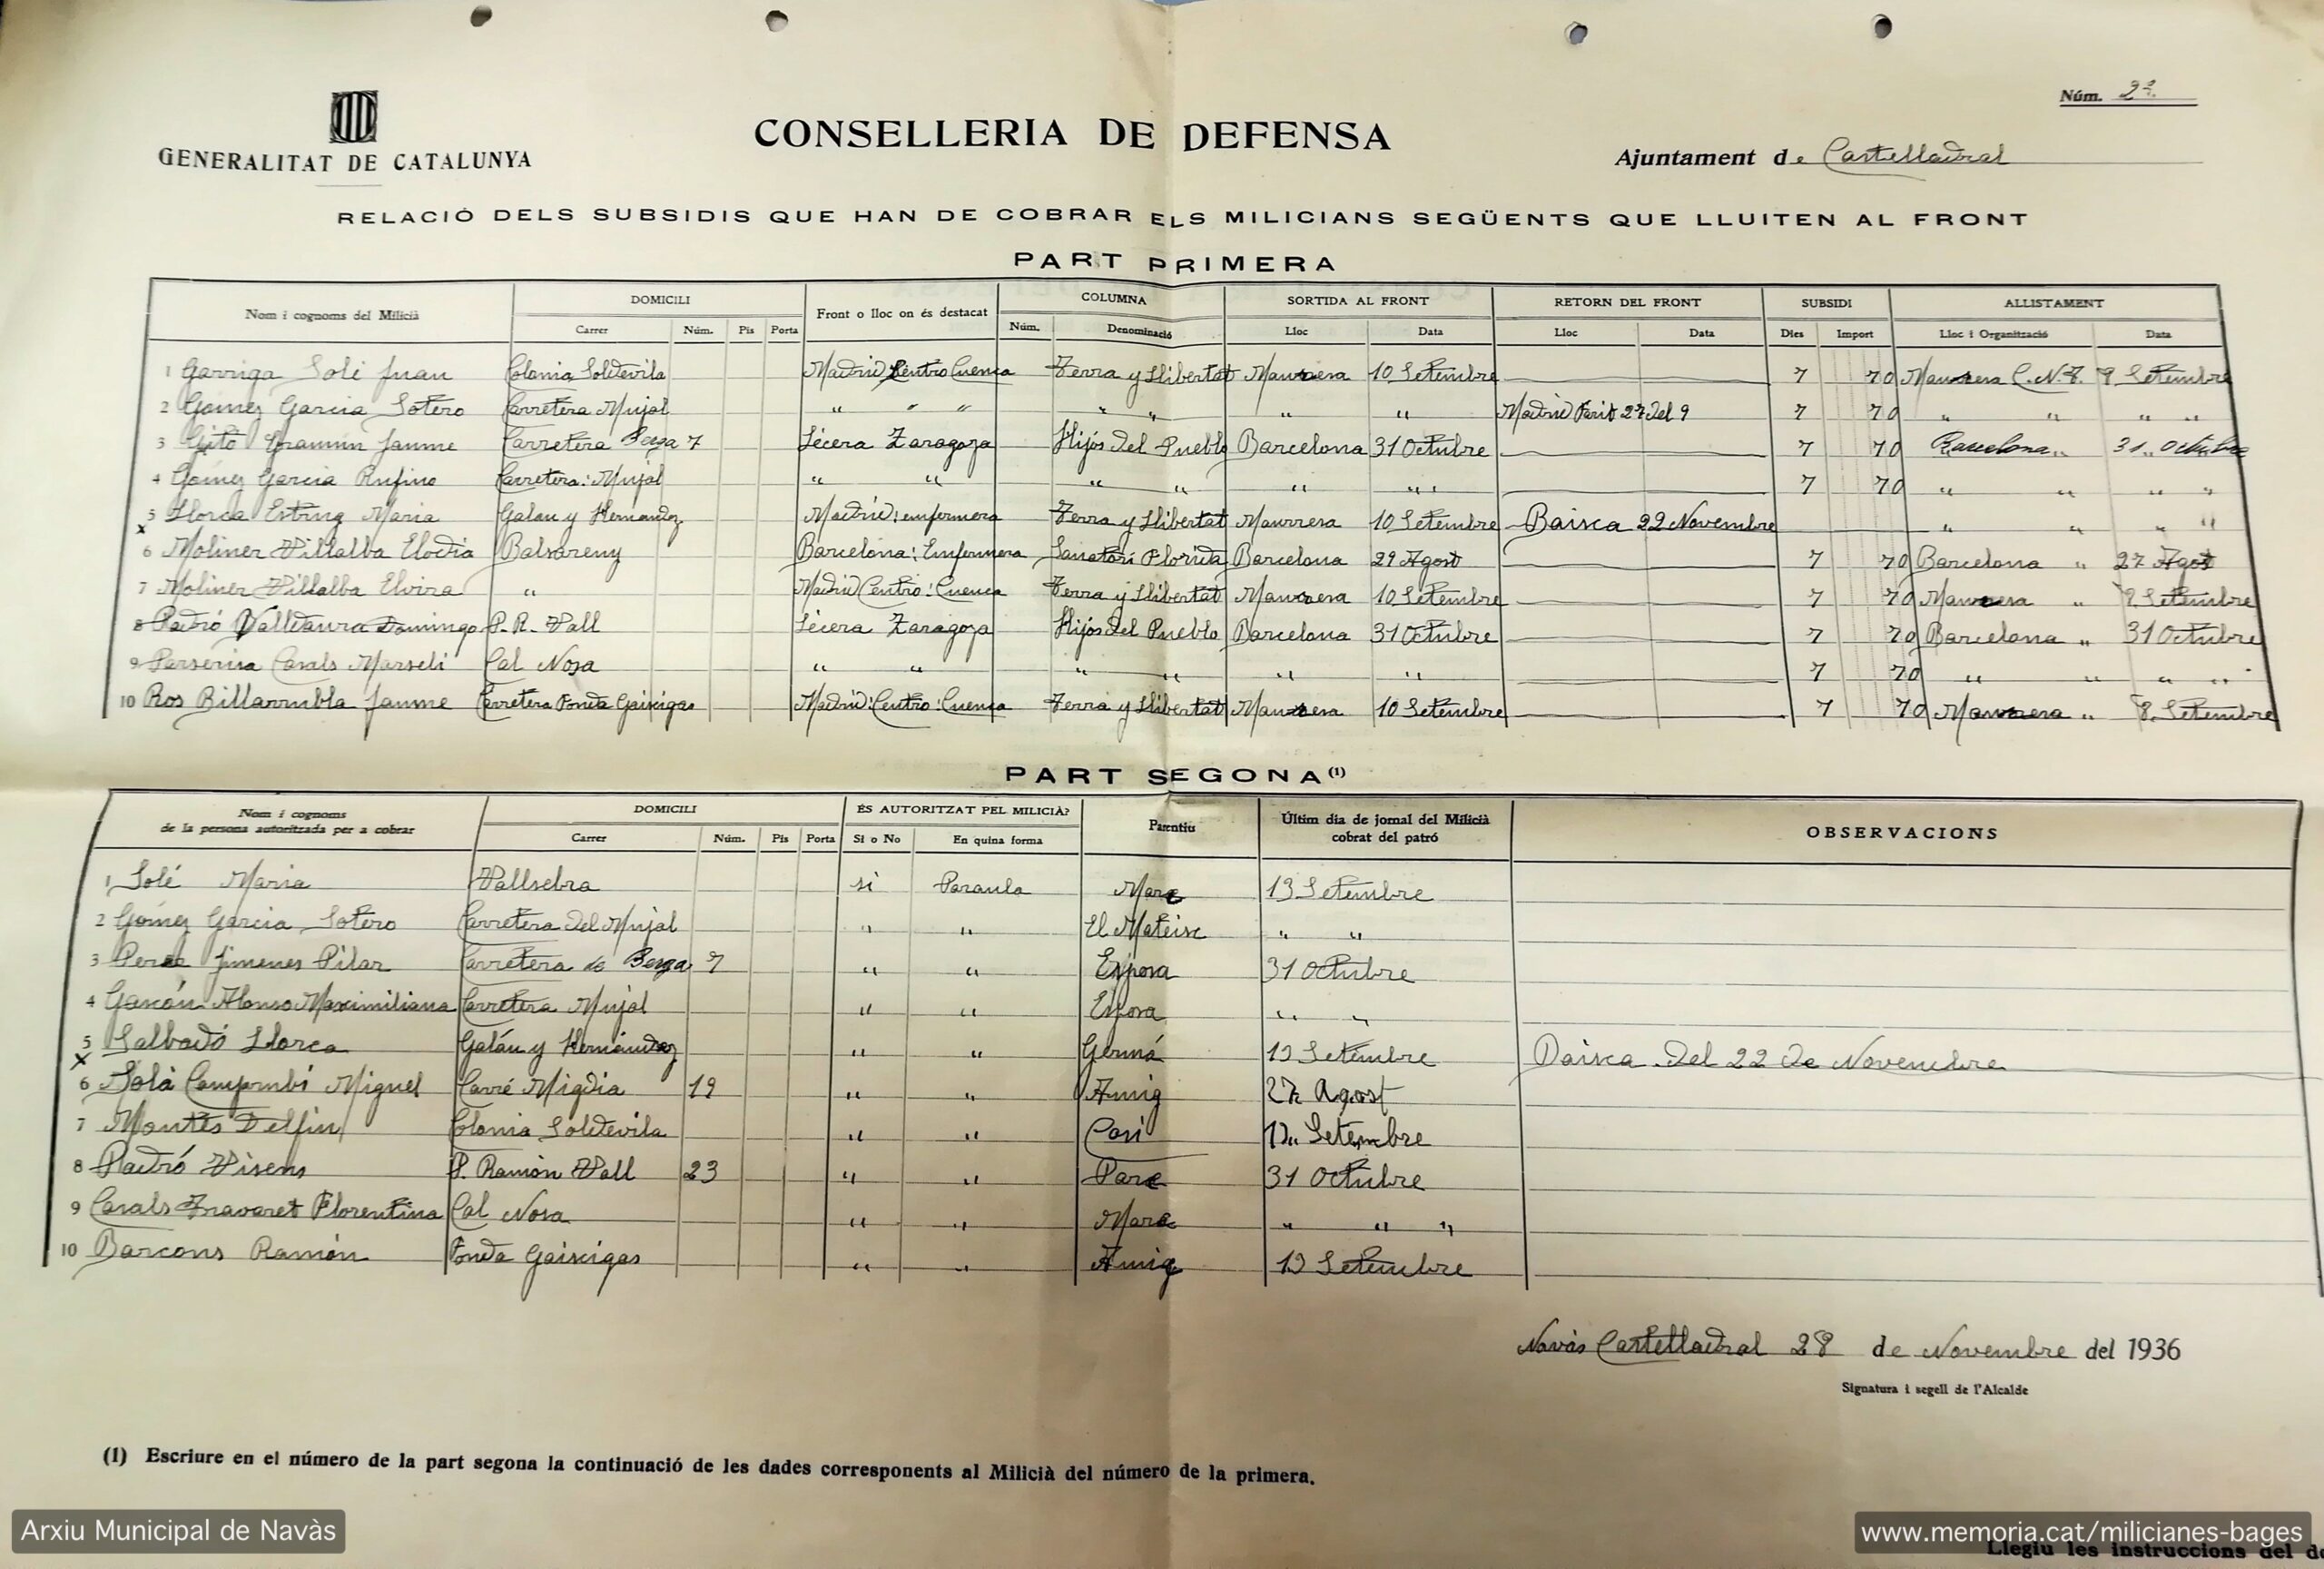 Núm. 27.
GENERALITAT DE CATALUNYA
CONSELLERIA DE DEFENSA
Ajuntament de Castelladral
RELACIÓ DELS SUBSIDIS QUE HAN DE COBRAR ELS MILICIANS SEGÜENTS QUE LLUITEN AL FRONT
PART PRIMERA
Nom i cognoms del Milicià DOMICILI Front o lloc on és destacat COLUMNA SORTIDA AL FRONT RETORN DEL FRONT SUBSIDI ALLISTAMENT
Carrer Núm. Pis Porta Núm. Denominació Lloc Data Lloc Data Dies Import Lloc i Organització Data
1 Garriga Solé Juan Colonia Soldevila Madrid Centro Cuenca Terra y Llibertat Manresa 10 Setembre 7 70 Manresa C.N.T. 9 Setembre
2 Gómez Garcia Sotero Carretera Mujal " " " " " " " Madrid Ferit 27 del 9 7 70 " " " "
3 Jaume Carretera Berga 7 Lécera Zaragoza Hijos del Pueblo Barcelona 31 Octubre 7 70 Barcelona " 31 Octubre
4 Gómez Garcia Rufino Carretera: Mujal " " " " " " " 7 70 " " " "
5 Llorca Maria Galan y Hernandez Madrid: enfermera Terra y Llibertat Manresa 10 Setembre Baixa 22 Novembre " " " "
x
6 Moliner Villalba Elodia Balsareny Barcelona: Enfermera Sanatori Florida Barcelona 29 Agost 7 70 Barcelona " 27 Agost
7 Moliner Villalba Elvira " Madrid Centro: Cuenca Terra y Llibertat Manresa 10 Setembre 7 70 Manresa " 9 Setembre
8 Padró Valldaura Domingo P. R. Vall Lécera Zaragoza Hijos del Pueblo Barcelona 31 Octubre 7 70 Barcelona " 31 Octubre
9 Casals Marseli Cal Nosa " " " " " " " 7 70 " " " "
10 Ros Billarrubla Jaume Carretera Fonda Gaixigas Madrid: Centro: Cuenca Terra y Llibertat Manresa 10 Setembre 7 70 Manresa " 8 Setembre
PART SEGONA (1)
Nom i cognoms de la persona autoritzada per a cobrar DOMICILI ÉS AUTORITZAT PEL MILICIÀ? Parentiu Últim dia de jornal del Milicià cobrat del patró OBSERVACIONS
Carrer Núm. Pis Porta Sí o No En quina forma
1 Solé Maria Vallsebra si Paraula Mare 13 Setembre
2 Gómez Garcia Sotero Carretera del Mujal " " El Mateix " "
3 Jimenes Pilar Carretera de Berga 7 " " Esposa 31 Octubre
4 Gascón Alonso Maximiliana Carretera Mujal " " Esposa " "
5 Salbadó Llorca Galán y Hernández " " Germá 13 Setembre Baixa del 22 de Novembre
x
6 Solà Miguel Carré Migdia 19 " " Amig 27 Agost
7 Montés Delfin Colonia Soldevila " " Cosi Setembre
8 Padró Visens P. Ramón Vall 23 " " Pare 31 Octubre
9 Casals Florentina Cal Nosa " " Mare " " "
10 Barcons Ramón Fonda Gaixigas " " Amig 13 Setembre
Navàs Castelladral 28 de Novembre del 1936
Signatura i segell de l'Alcalde
(1) Escriure en el número de la part segona la continuació de les dades corresponents al Milicià del número de la primera.
Arxiu Municipal de Navàs
www.memoria.cat/milicianes-bages
Llegiu les instruccions del